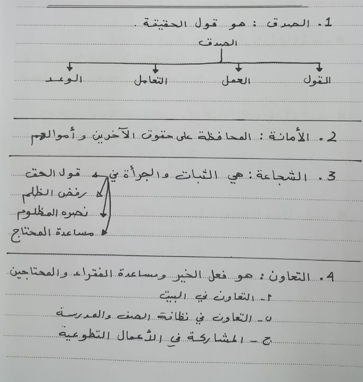 1. الصدق : هو قول الحقيقة .
الصدق
القول العمل التعامل الوعد
2. الأمانة : المحافظة على حقوق الآخرين وأموالهم
3. الشجاعة : هي الثبات والجرأة في قول الحق
رفض الظلم
نصره المظلوم
مساعدة المحتاج
4. التعاون : هو فعل الخير ومساعدة الفقراء والمحتاجين
أ - التعاون في البيت
ب - التعاون في نظافة الصف والمدرسة
ج - المشاركة في الأعمال التطوعية